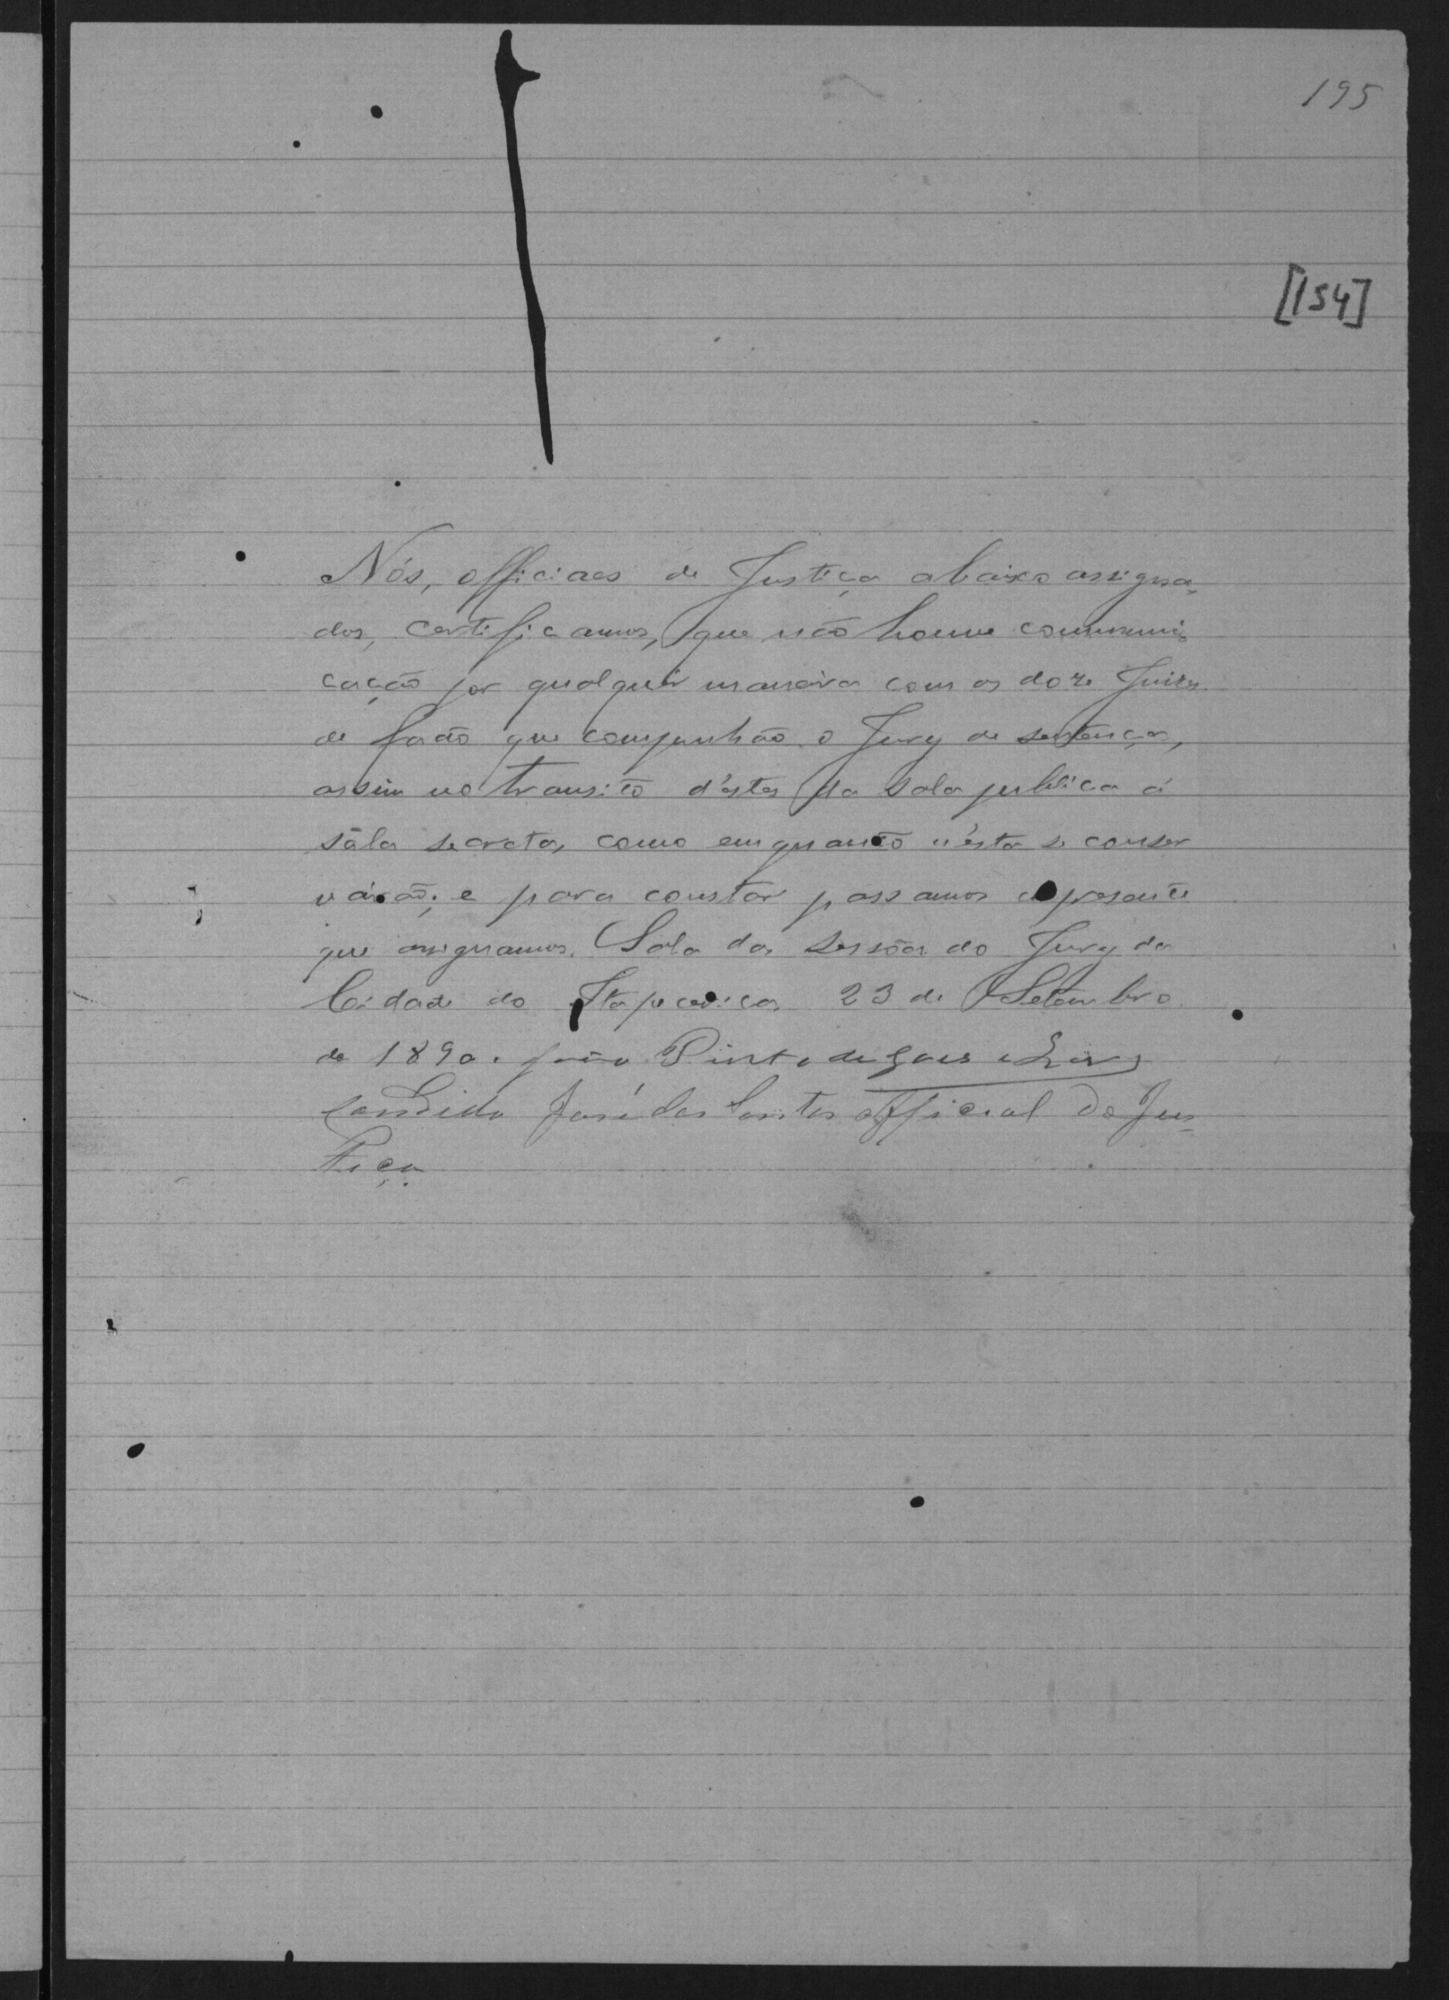 195
[154]
Nós, officiaes de Justiça abaixo assigna-
dos, certificamos, que não houve communi-
cação por qualquer maneira com os doze Juizes
de facto que compunhão o Jury de sentença,
assim no transito d'estes da sala publica á
sála secreta, como emquanto n'esta se conser
várão; e para constar passamos a presente
que assignamos. Sala das sessões do Jury da
Cidade do Itapecerica, 23 de Setembro
de 1890. João Pinto de Goes e
Candido José dos Santos official de Jus-
tiça